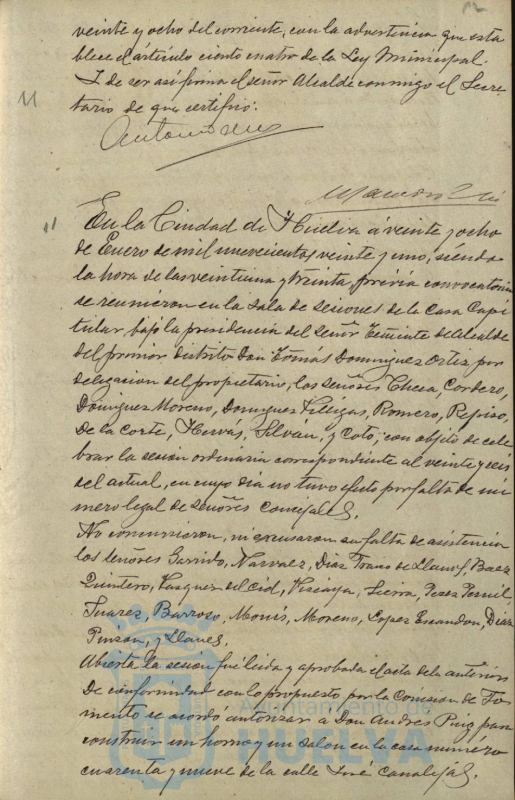 veinte y ocho del corriente, con la advertencia que esta
blece el artículo ciento cuatro de la Ley Municipal.
I de ser así firma el señor Alcalde conmigo el Secre
tario de que certifico.
11
En la Ciudad de Huelva á veinte y ocho
de Enero de mil novecientos veinte y uno, siendo
la hora de las veintiuna y treinta, prévia convocatoria
se reunieron en la sala de sesiones de la Casa Capi
tular, bajo la presidencia del Señor Teniente de Alcalde
del primer distrito Don Tomás Dominguez Ortiz por
delegacion del propietario, los señores Checa, Cordero,
Dominguez Moreno, Dominguez Villegas, Romero, Repiso,
De la Corte, Hervás, Silván, y Coto; con objeto de cele
brar la sesion ordinaria correspondiente al veinte y seis
del actual, en cuyo dia no tuvo efecto por falta de nú
mero legal de Señores Concejales.
No concurrieron, ni excusaron su falta de asistencia
los señores Garrido, Narvaez, Diaz Franco de Llanos, Baez
Quintero, Vasquez del Cid, Vizcaya, Sierra, Perez
Suarez, Barroso, Monís, Moreno, Lopez Escandon, Diaz
Pinzon, y Llanes.
Abierta la sesion fué leida y aprobada el acta de la anterior
De conformidad con lo propuesto por la Comision de Fo
mento se acordó autorizar a Don Andres Puig para
construir un horno y un salon en la casa numéro
cuarenta y nueve de la calle José Canalejas.
Ayuntamiento de
HUELVA